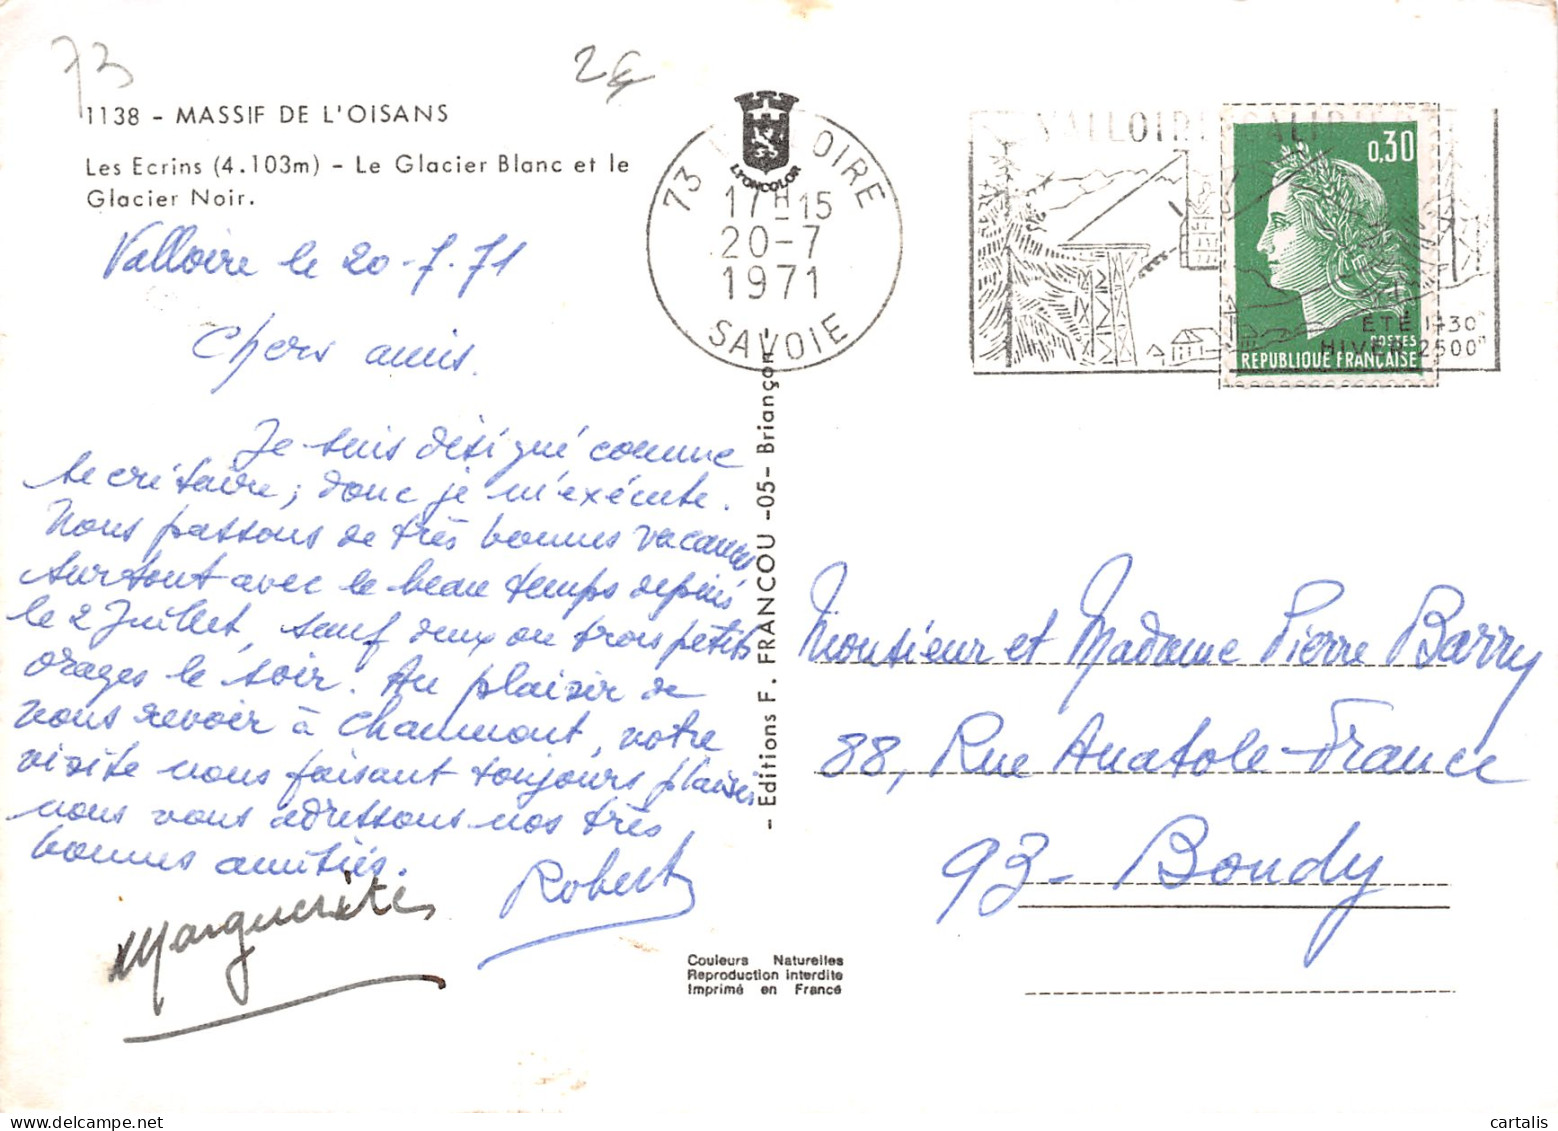 73
2€
1138 - MASSIF DE L'OISANS
Les Ecrins (4.103m) - Le Glacier Blanc et le
Glacier Noir.
Valloire le 20-7-71
Chers amis.
Je suis désigné comme
secrétaire ; donc je m'exécute.
Nous passons de très bonnes vacances
surtout avec le beau temps depuis
le 2 Juillet, sauf deux ou trois petits
orages le soir. Au plaisir de
vous revoir à Chaumont, votre
visite nous faisant toujours plaisir
nous vous adressons nos très
bonnes amitiés.
Marguerite
Robert
LYONCOLOR
73 OIRE
17H15
20-7
1971
SAVOIE
VALLOIRE
0,30
ÉTÉ 1430m
HIVER 2500m
POSTES
REPUBLIQUE FRANÇAISE
- Editions F. FRANCOU -05- Briançon -
Monsieur et Madame Pierre Barry
88, Rue Anatole-France
93- Bondy
Couleurs Naturelles
Reproduction interdite
Imprimé en France
cartalis